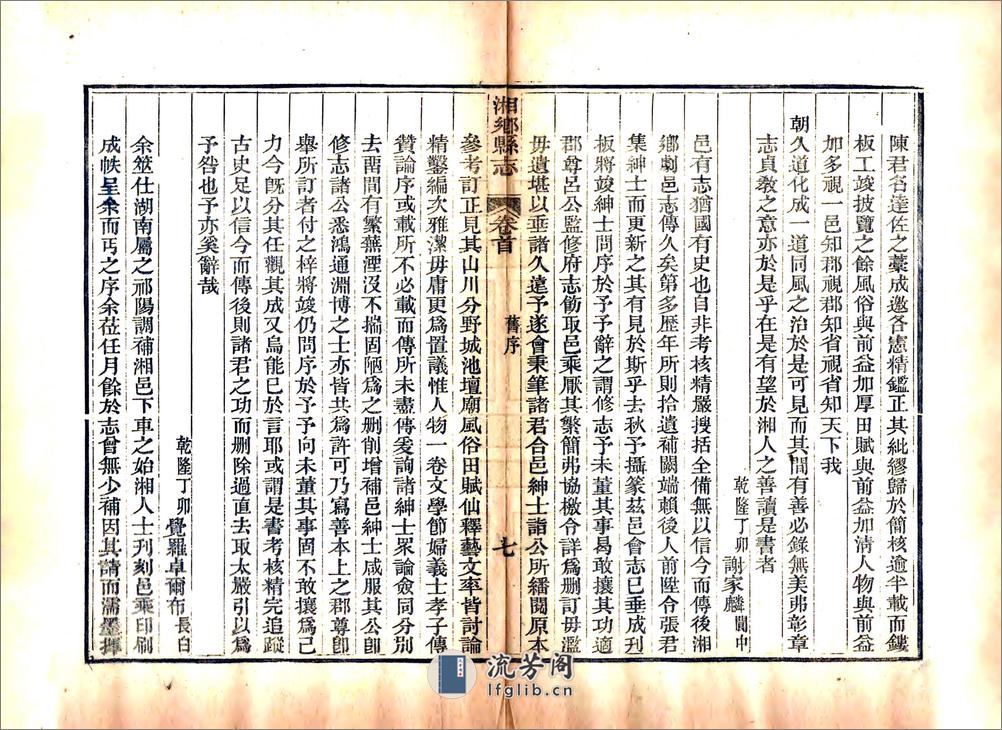 陳君名達佐之藁成邀各憲精鑑正其紕繆歸於簡核逾半載而鏤
板工竣披覽之餘風俗與前益加厚田賦與前益加清人物與前益
加多視一邑知郡視郡知省視省知天下我
朝久道化成一道同風之治於是可見而其間有善必錄無美弗彰章
志貞教之意亦於是乎在是有望於湘人之善讀是書者
乾隆丁卯謝家麟閩中
邑有志猶國有史也自非考核精嚴搜括全備無以信今而傳後湘
鄉劇邑志傳久矣第多歷年所則拾遺補闕端賴後人前陞令張君
集紳士而更新之其有見於斯乎去秋予攝篆茲邑會志已垂成刊
板將竣紳士問序於予予辭之謂修志予未董其事曷敢攘其功適
郡尊呂公監修府志飭取邑乘厭其繁簡弗協檄令詳爲删訂毋濫
毋遺堪以垂諸久遠予遂會秉筆諸君合邑紳士詣公所繙閱原本
湘鄉縣志
卷首
舊序
七
參考訂正見其山川分野城池壇廟風俗田賦仙釋藝文率皆討論
精鑿編次雅潔毋庸更爲置議惟人物一卷文學節婦義士孝子傳
贊論序或載所不必載而傳所未盡傳爰詢諸紳士眾論僉同分別
去畱間有繁蕪湮沒不揣固陋爲之删削增補邑紳士咸服其公卽
修志諸公悉鴻通淵博之士亦皆共爲許可乃寫善本上之郡尊卽
舉所訂者付之梓將竣仍問序於予予向未董其事固不敢攘爲己
力今旣分其任觀其成又烏能已於言耶或謂是書考核精完追蹤
古史足以信今而傳後則諸君之功而删除過直去取太嚴引以爲
予咎也予亦奚辭哉
乾隆丁卯覺羅卓爾布長白
余筮仕湖南屬之祁陽調補湘邑下車之始湘人士刋刻邑乘印刷
成帙呈余而丐之序余莅任月餘於志曾無少補因其請而濡墨揮
流芳阁
lfglib.cn